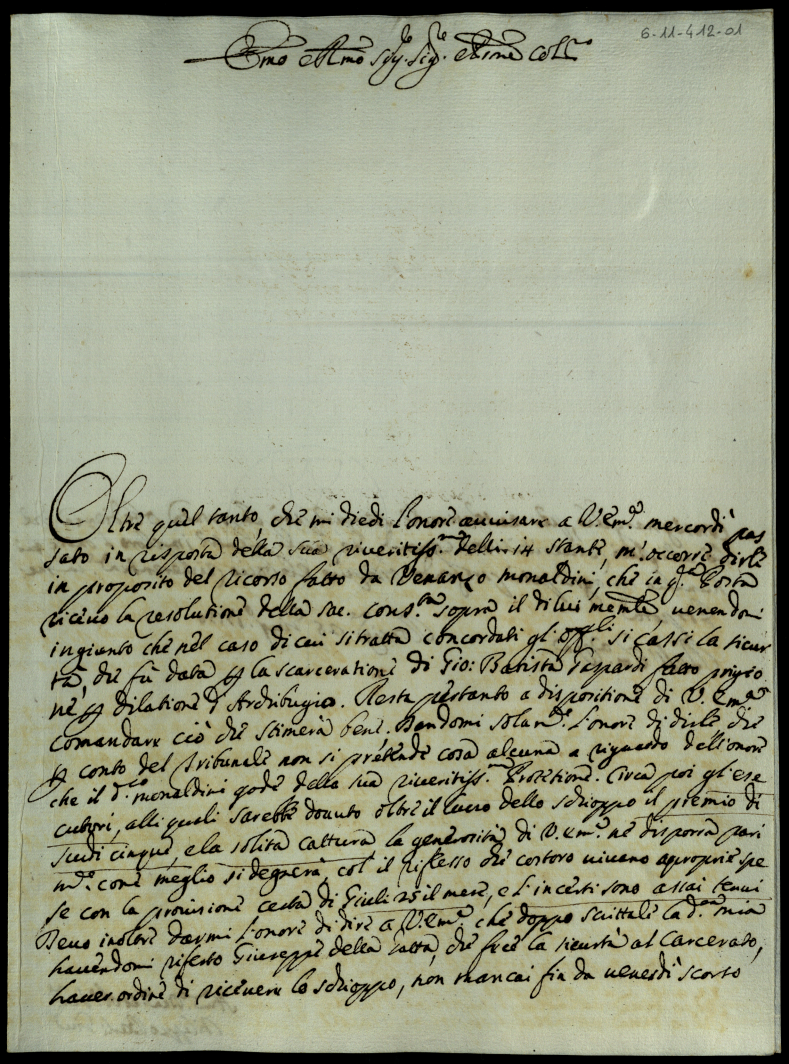 6-11-412-01
Emo e Rmo Sig.re Sig.re e Prõne Coll.mo
Oltre quel tanto, che mi diedi l'onore avvisare a V. Em.za mercordì pas
sato in risposta della sua riveritiss.ma delli 14 stante, m'occorre dirle
in proposito del ricorso fatto da Venanzo Monaldini, che in q.ta Posta
ricevo la resolutione della Sac. Cons.ta sopra il di lui memle, venendomi
ingiunto che nel caso di cui si tratta concordati gl'offli si cassi la sicur
tà, che fù data p la scarceratione di Gio: Batista Gaspardi fatto prigio
ne p dilatione d'Archibugio. Resta pertanto a dispositione di V. Em.za
comandare ciò che stimerà bene. Dandomi solam.e l'onore di dirle che
p conto del Tribunale non si pretende cosa alcuna a riguardo dell'onore
che il d.o Monaldini gode della sua riveritiss.ma Protetione. Circa poi gl'ese
cutori, alli quali sarebbe dovuto oltre il lucro dello schioppo il premio di
scudi cinque, e la solita cattura la generosità di V. Em.za ne disporrà pari
m.e come meglio si degnerà, col il riflesso che costoro vivano a proprie spe
se con la provisione certa di Giuli 25 il mese, e l'incerti sono assai tenui
Devo inoltre darmi l'onore di dire a V. Em.za che doppo scrittale la d.a mia
havendomi riferto Giuseppe della Ratta, che fece la sicurtà al Carcerato,
haver ordine di ricevere lo schioppo, non mancai fin da venerdì scorso